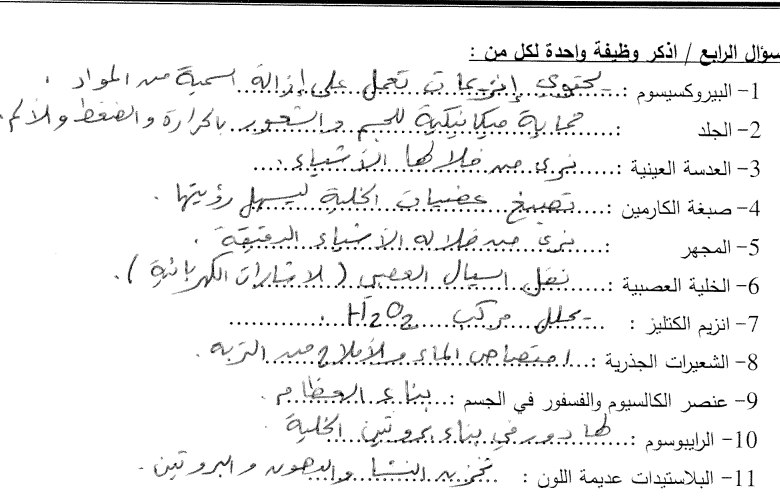 سؤال الرابع / اذكر وظيفة واحدة لكل من :
1- البيروكسيسوم : يحتوي إنزيمات تعمل على إزالة السمية من المواد .
2- الجلد : حماية ميكانيكية للجسم والشعور بالحرارة والضغط والألم .
3- العدسة العينية : نرى من خلالها الأشياء .
4- صبغة الكارمين : تصبغ عضيات الخلية ليسهل رؤيتها .
5- المجهر : نرى من خلاله الأشياء الدقيقة .
6- الخلية العصبية : نقل السيال العصبي ( الاشارات الكهربائية ) .
7- انزيم الكتليز : يحلل مركب H2O2 .
8- الشعيرات الجذرية : امتصاص الماء والأملاح من التربه .
9- عنصر الكالسيوم والفسفور في الجسم : بناء العظام .
10- الرايبوسوم : لها دور في بناء بروتين الخلية
11- البلاستيدات عديمة اللون : تخزين النشا والدهون والبروتين .